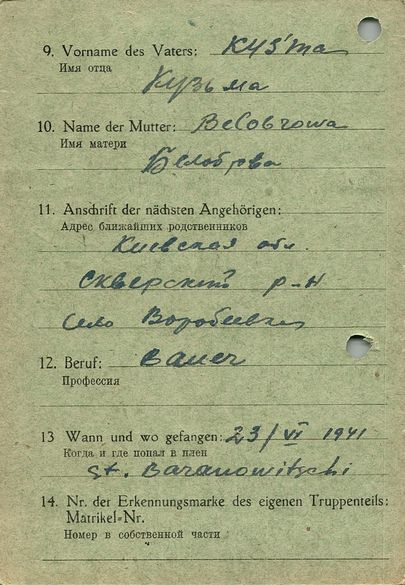 9. Vorname des Vaters: Kus'ma
Имя отца
Кузьма
10. Name der Mutter: Belobrowa
Имя матери
Белоброва
11. Anschrift der nächsten Angehörigen:
Адрес ближайших родственников
Киевская обл.
Сквирский р-н
село Воробиевка
12. Beruf: Bauer
Профессия
13 Wann und wo gefangen: 23/VI 1941
Когда и где попал в плен
St. Baranowitschi
14. Nr. der Erkennungsmarke des eigenen Truppenteils:
Matrikel-Nr.
Номер в собственной части